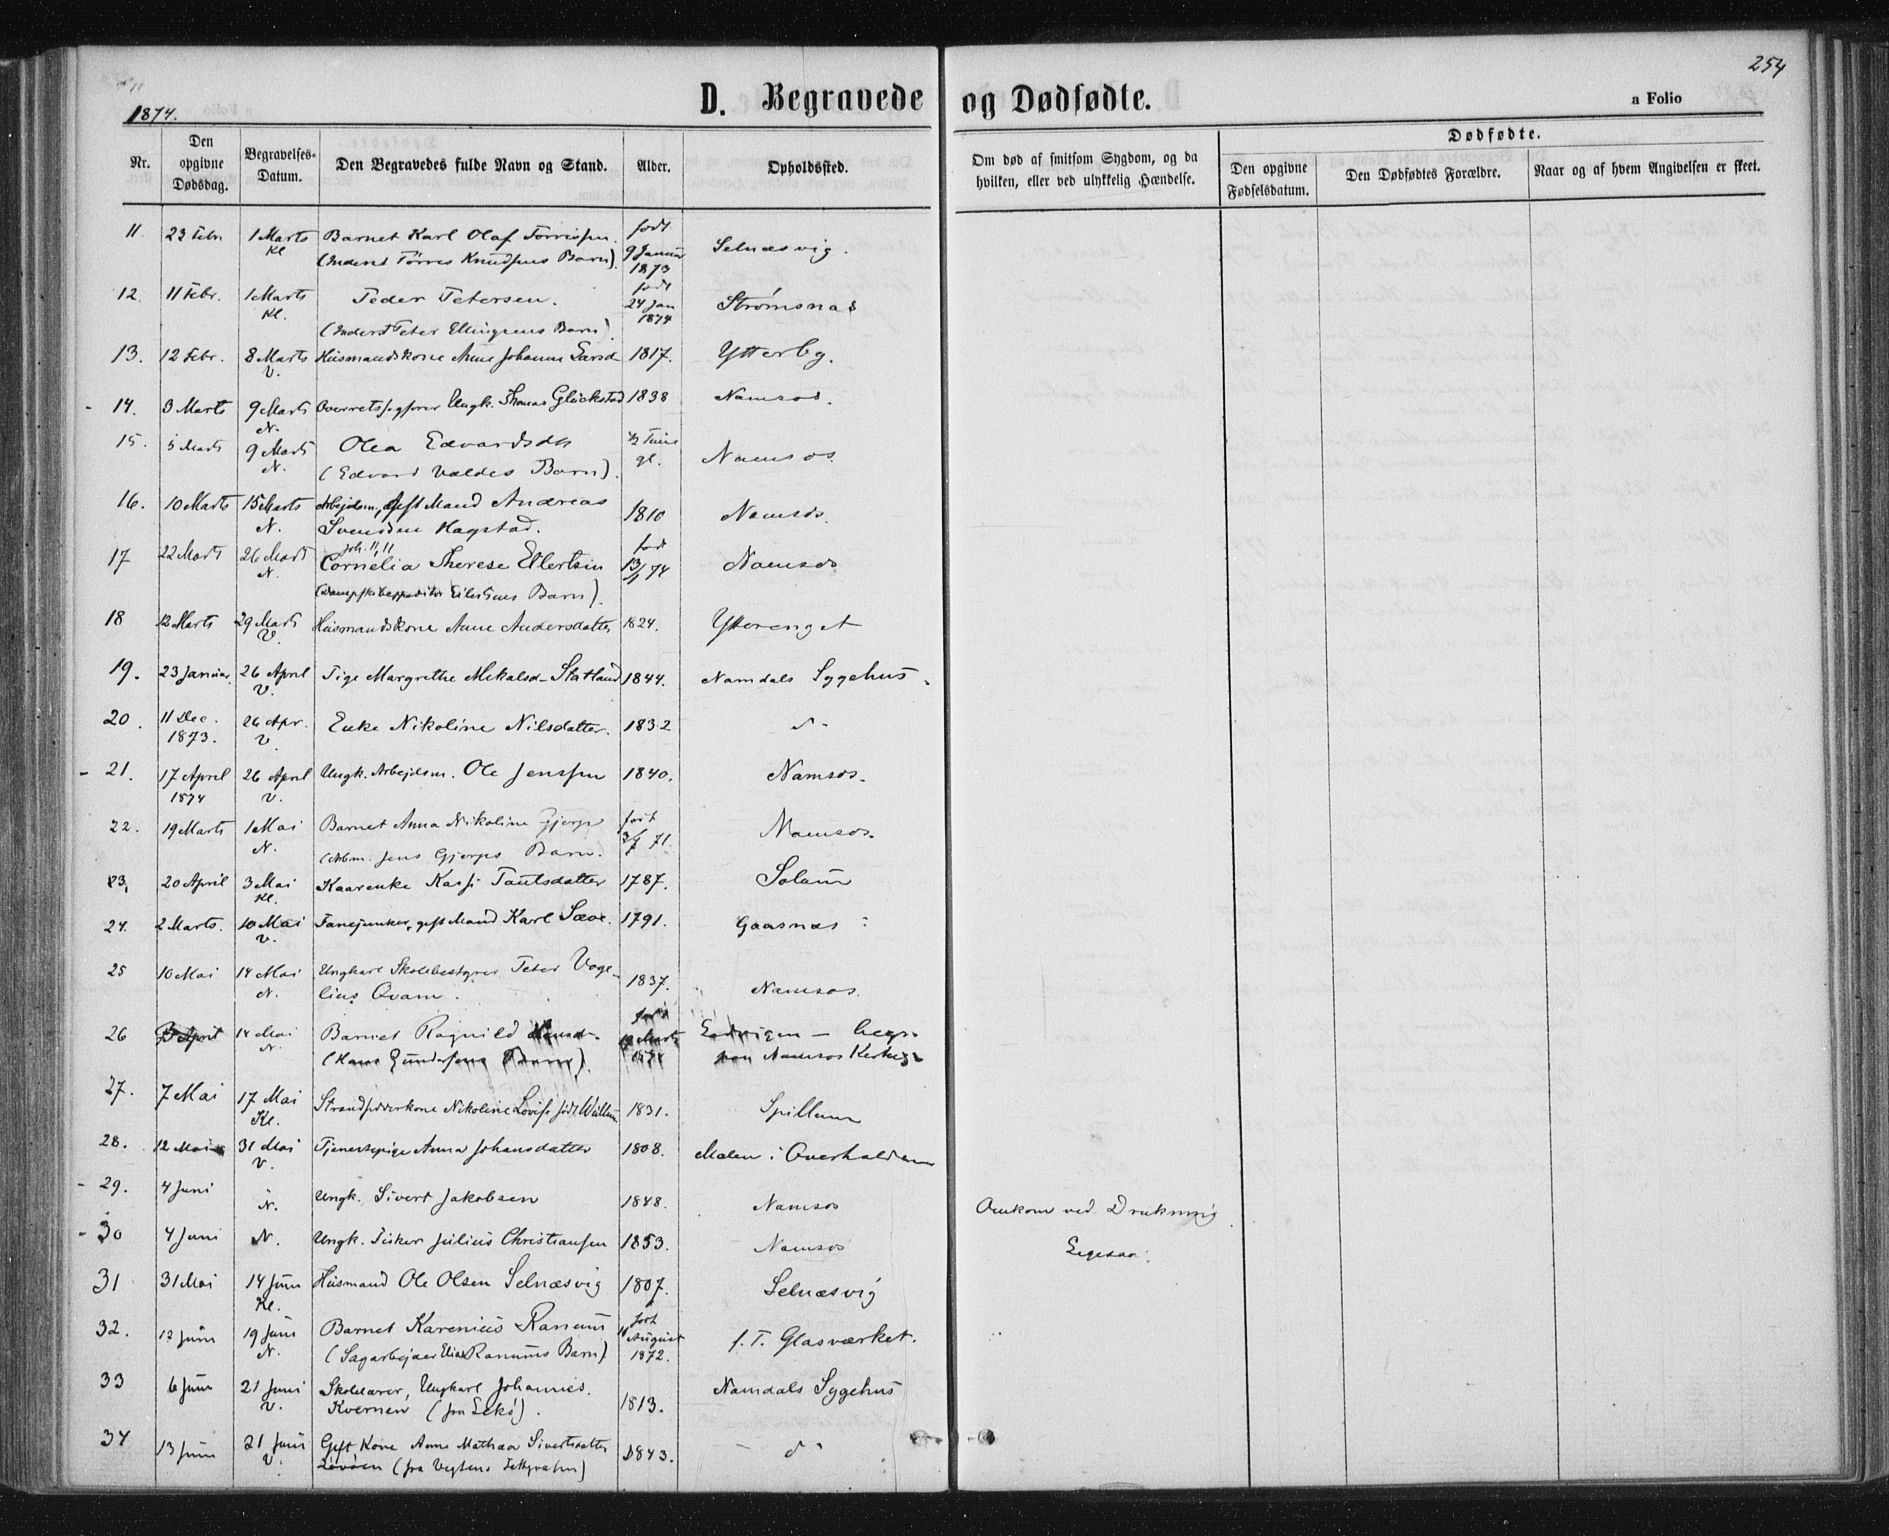 254
1874.
D. Begravede og Dødfødte.
a Folio
Nr.
Den opgivne Dødsdag.
Begravelses-Datum.
Den Begravedes fulde Navn og Stand.
Alder.
Opholdssted.
Om død af smitsom Sygdom, og da hvilken, eller ved ulykkelig Hændelse.
Dødfødte.
Den opgivne Fødselsdatum.
Den Dødfødtes Forældre.
Naar og af hvem Angivelsen er skeet.
11. 23 Febr. 1 Marts Kl Barnet Karl Olaf Torrissen. født 9 Januar 1873 Selnæsvig.
(Inderst Tørres Knudsens Barn)
12. 11 Febr. 1 Marts Kl. Peder Petersen. født 24 Jan 1874 Strømsnæs
(Inderst Peter Ellingsens Barn)
13. 12 Febr. 8 Marts V. Husmandskone Anne Johanna Larsd 1817. Ytterby.
14. 3 Marts 9 Marts N. Overretssagfører Ungk. Thomas Glückstad 1838 Namsos.
15. 5 Marts 9 Marts N. Olea Edvardsdtr ½ Time gl. Namsos.
(Edvard Valdes Barn).
16. 10 Marts 15 Marts N. Arbejdsm, gift Mand Andreas 1810 Namsos.
Svendsen Hagstad.
17 22 Marts 26 Marts N. Cornelia Therese Ellertsen født 13/1 74 Namsos
(Dampskibsexpeditør Eilertsens Barn).
18 12 Marts 29 Marts V. Husmandskone Anne Andersdatter 1824. Ytterenget
19. 23 Januar. 26 April V. Pige Margrethe Mikalsd. Statland 1844. Namdals Sygehus.
20. 11 Dec. 1873. 26 Apr. V. Enke Nikoline Nilsdatter. 1832
21. 17 April 1874 26 April V. Ungk. Arbejdsm. Ole Jenssen 1840. Namsos.
22. 19 Marts 1 Mai N. Barnet Anna Nikoline Gjerps født 3/7 71. Namsos.
(Arbm. Jens Gjerps Barn.
23, 20 April 3 Mai Kl. Kaarenke Paulsdatter 1787. Solum
24. 2 Marts. 10 Mai V. Fanejunker, gift Mand Karl Sæve. 1791. Gaasnæs
25 10 Mai 14 Mai N. Ungkarl Skolebestyrer Peter Voge- 1837. Namsos.
lius Qvam.
26 April 14 Mai N. Barnet Ragnild født Marts 1874 begr.
(Hans Gundersens Barn). paa Namsos Kirkeg.
27. 7 Mai 17 Mai Kl. Strandsidderkone Nikoline Lovise født Wullum 1831. Spillum
28. 12 Mai 31 Mai V. Tjenestepige Anna Johansdatter 1808. Malen i Overhalden
29. 4 Juni N. Ungk. Sivert Jakobsen 1848. Namsos Omkom ved Drukning
30 4 Juni N. Ungk. Julius Christiansen 1853. Namsos Ligesaa.
31 31 Mai 14 Juni Kl. Husmand Ole Olsen Selnæsvig 1807. Selnæsvig
32. 12 Juni 19 Juni N. Barnet Karenius Ranum født 11 August 1872. f. T. Glasværket.
(Sagarbejder Elias Ranums Barn)
33 6 Juni 21 Juni V. Skolelærer, Ungkarl Johannes 1813. Namdals Sygehus
Kvernen (fra Lekø).
34 13 Juni 21 Juni V. Gift Kone Anne Mathea Sivertsdatter 1843. — d°
Løvøen (fra Vegtens Præstegjeld)